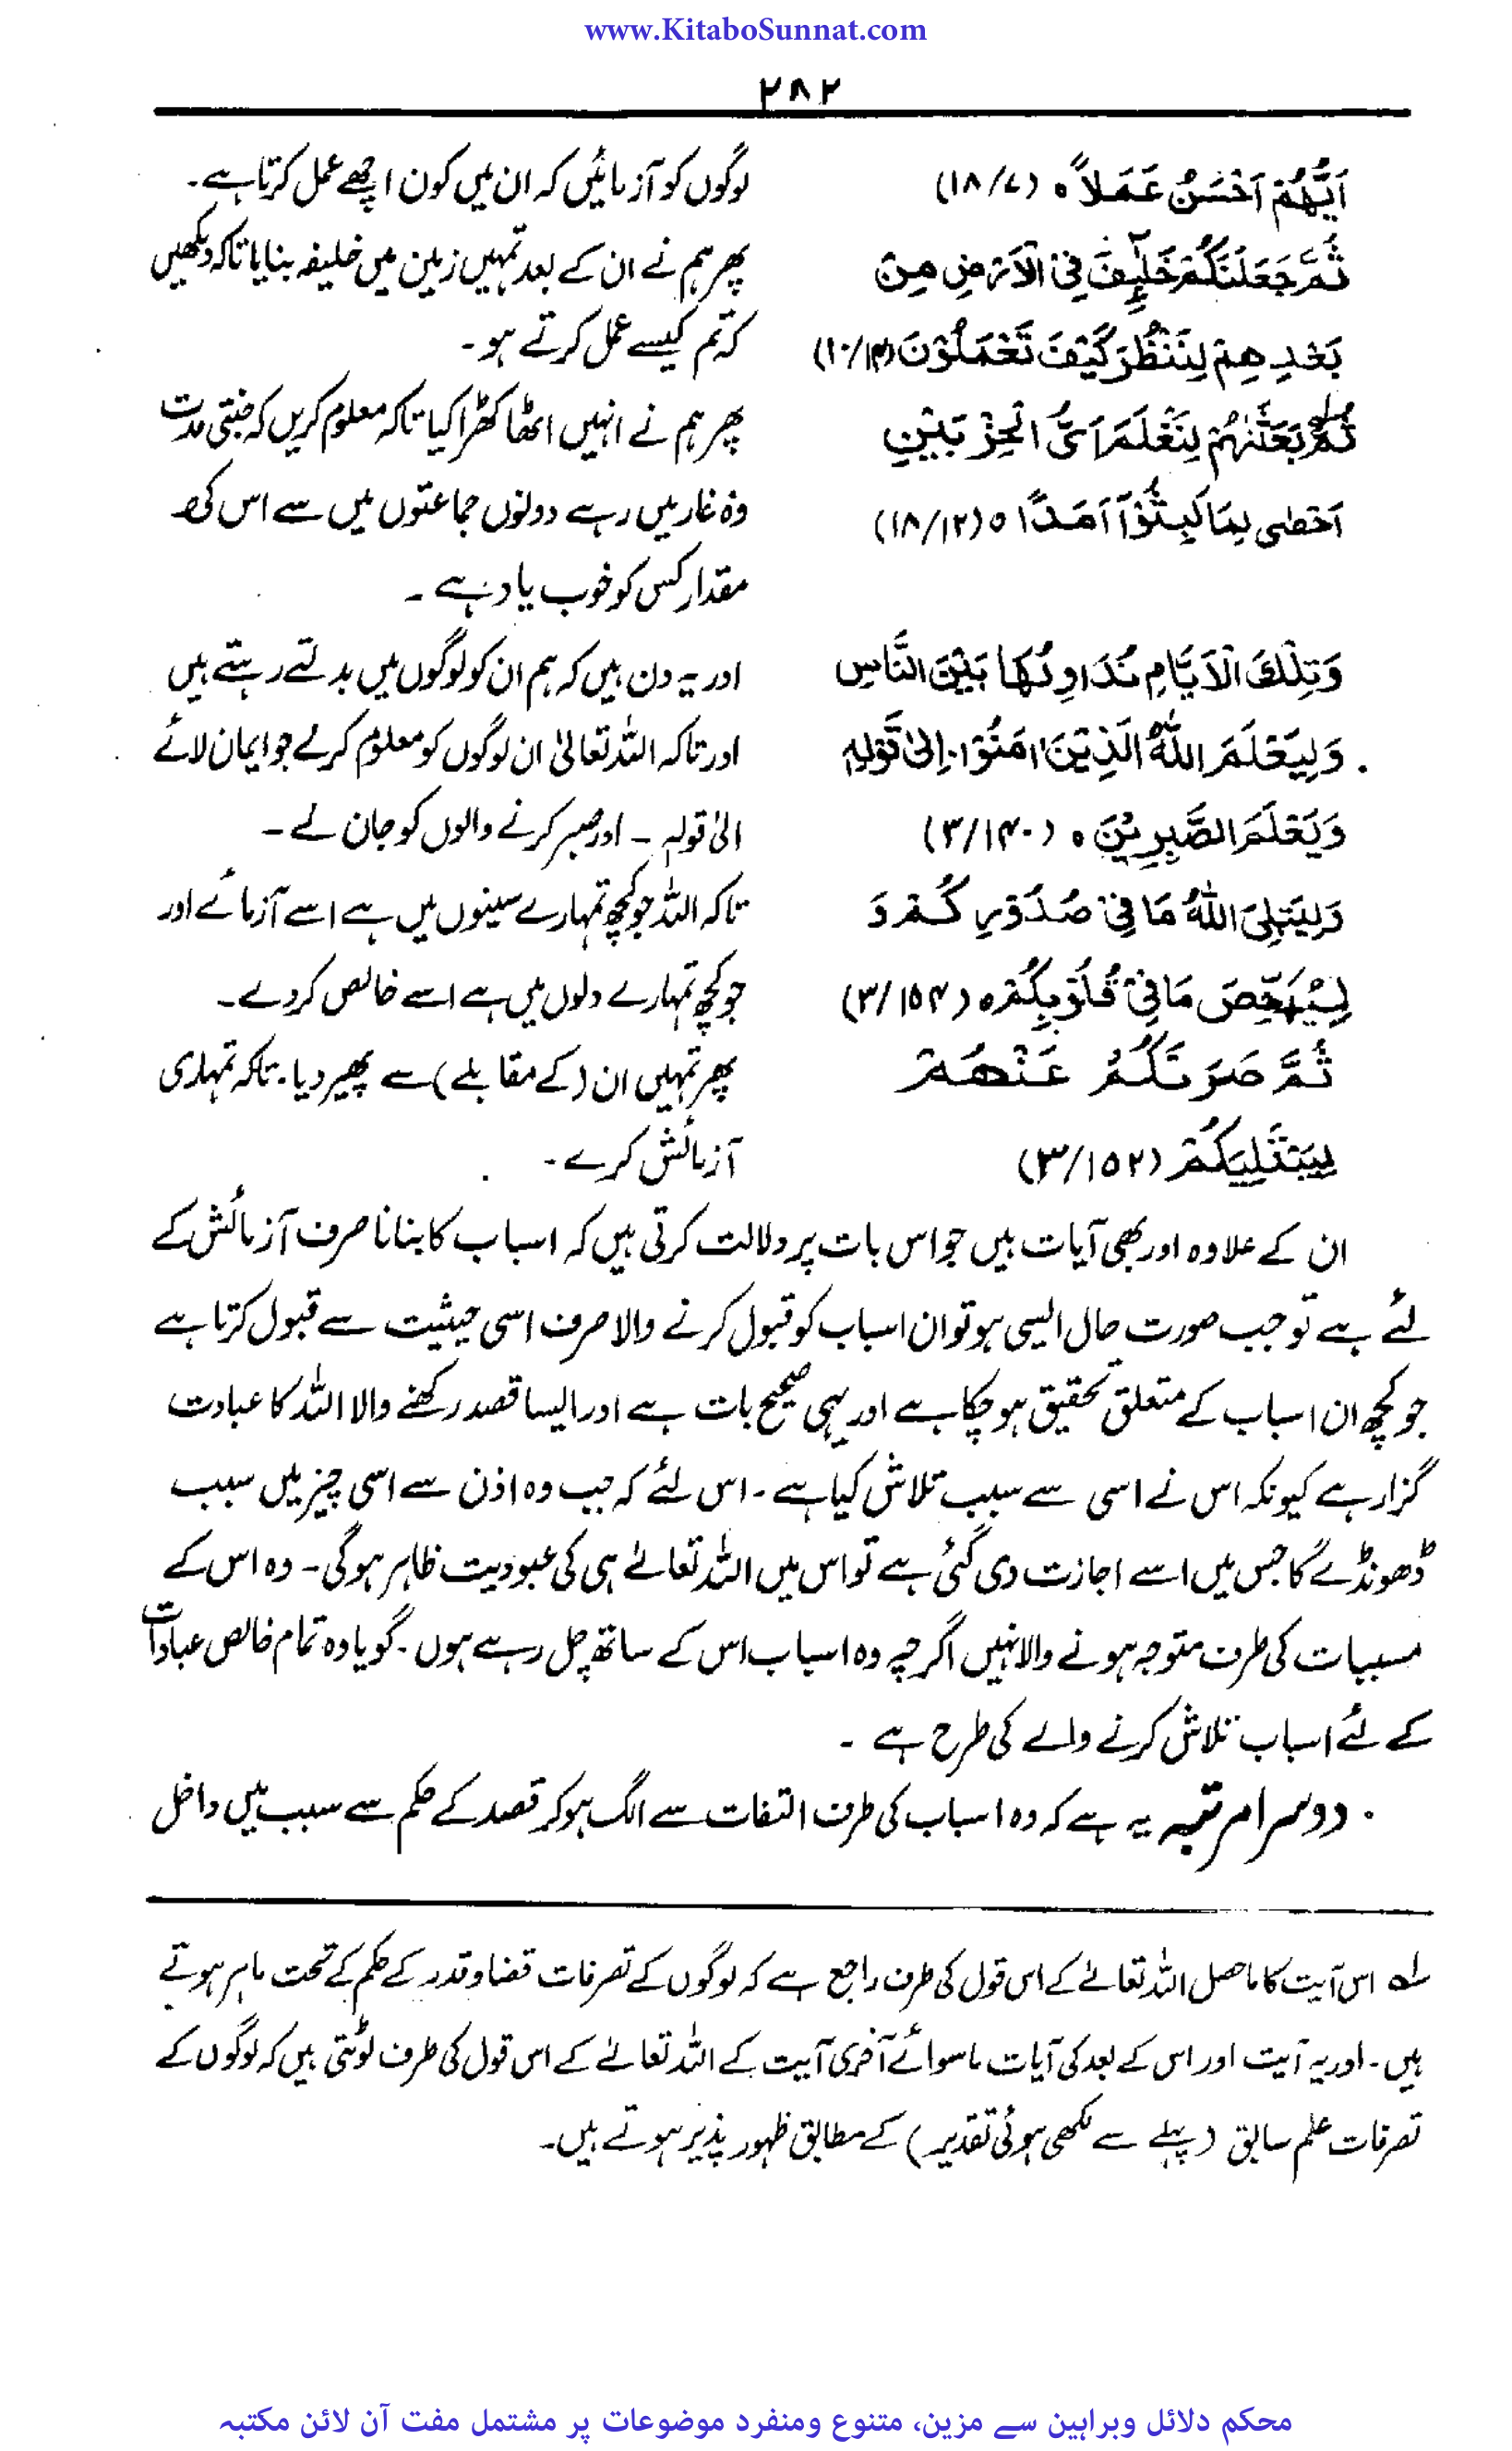 www.KitaboSunnat.com
۲۸۲
اَيُّهُمْ اَحْسَنُ عَمَلاً ٥ (۱۸/۷)
لوگوں کو آزمائیں کہ ان میں کون اچھے عمل کرتا ہے۔
ثُمَّ جَعَلْنٰكُمْ خَلٰٓئِفَ فِي الْاَرْضِ مِنْ
پھر ہم نے ان کے بعد تمہیں زمین میں خلیفہ بنایا تاکہ دیکھیں
بَعْدِهِمْ لِنَنْظُرَ كَيْفَ تَعْمَلُوْنَ (۱۰/۱۴)
کہ تم کیسے عمل کرتے ہو۔
ثُمَّ بَعَثْنٰهُمْ لِنَعْلَمَ اَىُّ الْحِزْبَيْنِ
پھر ہم نے انہیں اٹھا کھڑا کیا تاکہ معلوم کریں کہ جتنی مدت
اَحْصٰى لِمَا لَبِثُوْٓا اَمَدًا ٥ (۱۸/۱۲)
وہ غار میں رہے دونوں جماعتوں میں سے اس کی
مقدار کس کو خوب یاد ہے ۔
وَتِلْكَ الْاَيَّامِ نُدَاوِلُهَا بَيْنَ النَّاسِ
اور یہ دن ہیں کہ ہم ان کو لوگوں میں بدلتے رہتے ہیں
وَلِيَعْلَمَ اللّٰهُ الَّذِيْنَ اٰمَنُوْا۔ اِلٰى قَوْلِهٖ
اور تاکہ اللہ تعالیٰ ان لوگوں کو معلوم کرلے جو ایمان لائے
وَيَعْلَمَ الصّٰبِرِيْنَ ٥ (۳/۱۴۰)
الیٰ قولہٖ ۔ اور صبر کرنے والوں کو جان لے ۔
وَلِيَبْتَلِىَ اللّٰهُ مَا فِيْ صُدُوْرِكُمْ وَ
تاکہ اللہ جو کچھ تمہارے سینوں میں ہے اسے آزمائے اور
لِيُمَحِّصَ مَا فِيْ قُلُوْبِكُمْ ٥ (۳/۱۵۴)
جو کچھ تمہارے دلوں میں ہے اسے خالص کردے۔
ثُمَّ صَرَفَكُمْ عَنْهُمْ
پھر تمہیں ان (کے مقابلے) سے پھیر دیا۔ تاکہ تمہاری
لِيَبْتَلِيَكُمْ (۳/۱۵۲)
آزمائش کرے۔
ان کے علاوہ اور بھی آیات ہیں جو اس بات پر دلالت کرتی ہیں کہ اسباب کا بنانا صرف آزمائش کے
لئے ہے تو جب صورت حال ایسی ہو تو ان اسباب کو قبول کرنے والا صرف اسی حیثیت سے قبول کرتا ہے
جو کچھ ان اسباب کے متعلق تحقیق ہوچکا ہے اور یہی صحیح بات ہے اور ایسا قصد رکھنے والا اللہ کا عبادت
گزار ہے کیونکہ اس نے اسی سے سبب تلاش کیا ہے ۔ اس لئے کہ جب وہ اذن سے اسی چیز میں سبب
ڈھونڈے گا جس میں اسے اجازت دی گئی ہے تو اس میں اللہ تعالےٰ ہی کی عبودیت ظاہر ہوگی ۔ وہ اس کے
مسببات کی طرف متوجہ ہونے والا نہیں اگرچہ وہ اسباب اس کے ساتھ چل رہے ہوں ۔ گویا وہ تمام خالص عبادات
کے لئے اسباب تلاش کرنے والے کی طرح ہے ۔
• دوسرا مرتبہ یہ ہے کہ وہ اسباب کی طرف التفات سے الگ ہوکر قصد کے حکم سے سبب میں داخل
لہ اس آیت کا ماحصل اللہ تعالےٰ کے اس قول کی طرف راجع ہے کہ لوگوں کے تصرفات قضا وقدر کے حکم کے تحت باہر ہوتے
ہیں ۔ اور یہ آیت اور اس کے بعد کی آیات ماسوائے آخری آیت کے اللہ تعالےٰ کے اس قول کی طرف لوٹتی ہیں کہ لوگوں کے
تصرفات علم سابق (پہلے سے لکھی ہوئی تقدیر) کے مطابق ظہور پذیر ہوتے ہیں۔
محکم دلائل وبراہین سے مزین، متنوع ومنفرد موضوعات پر مشتمل مفت آن لائن مکتبہ